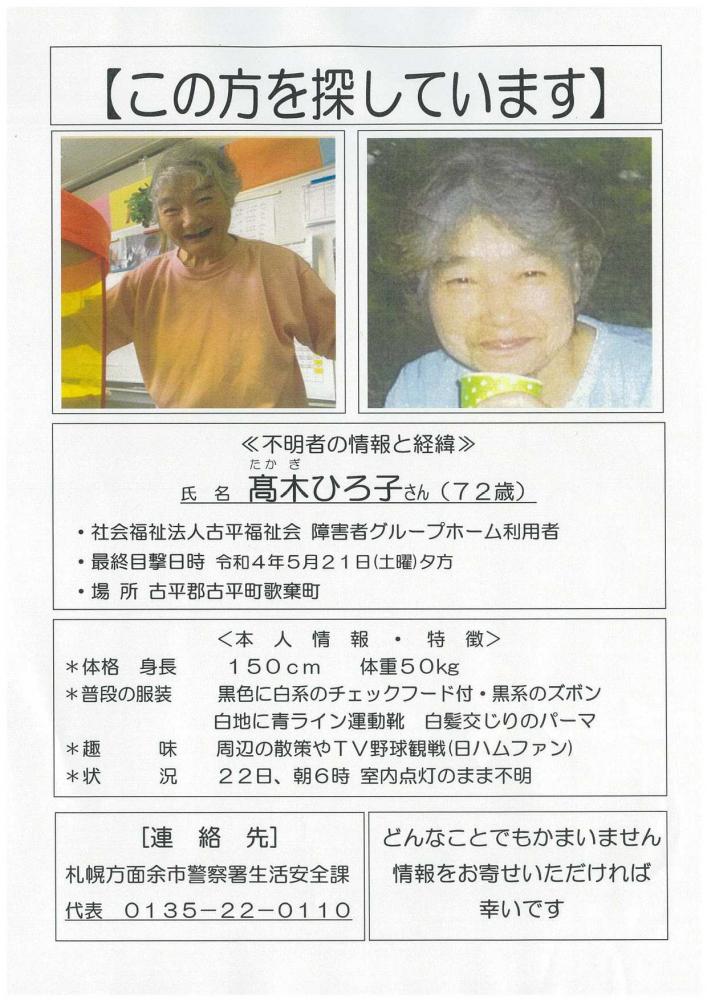 【この方を探しています】
≪不明者の情報と経緯≫
たか ぎ
氏 名 髙木ひろ子さん（７２歳）
・社会福祉法人古平福祉会 障害者グループホーム利用者
・最終目撃日時 令和４年５月２１日(土曜)夕方
・場 所 古平郡古平町歌棄町
＜本 人 情 報 ・ 特 徴＞
＊体格 身長 １５０ｃｍ 体重50kg
＊普段の服装 黒色に白系のチェックフード付・黒系のズボン
白地に青ライン運動靴 白髪交じりのパーマ
＊趣 味 周辺の散策やＴＶ野球観戦(日ハムファン)
＊状 況 ２２日、朝６時 室内点灯のまま不明
[連 絡 先]
札幌方面余市警察署生活安全課
代表 ０１３５－２２－０１１０
どんなことでもかまいません
情報をお寄せいただければ
幸いです